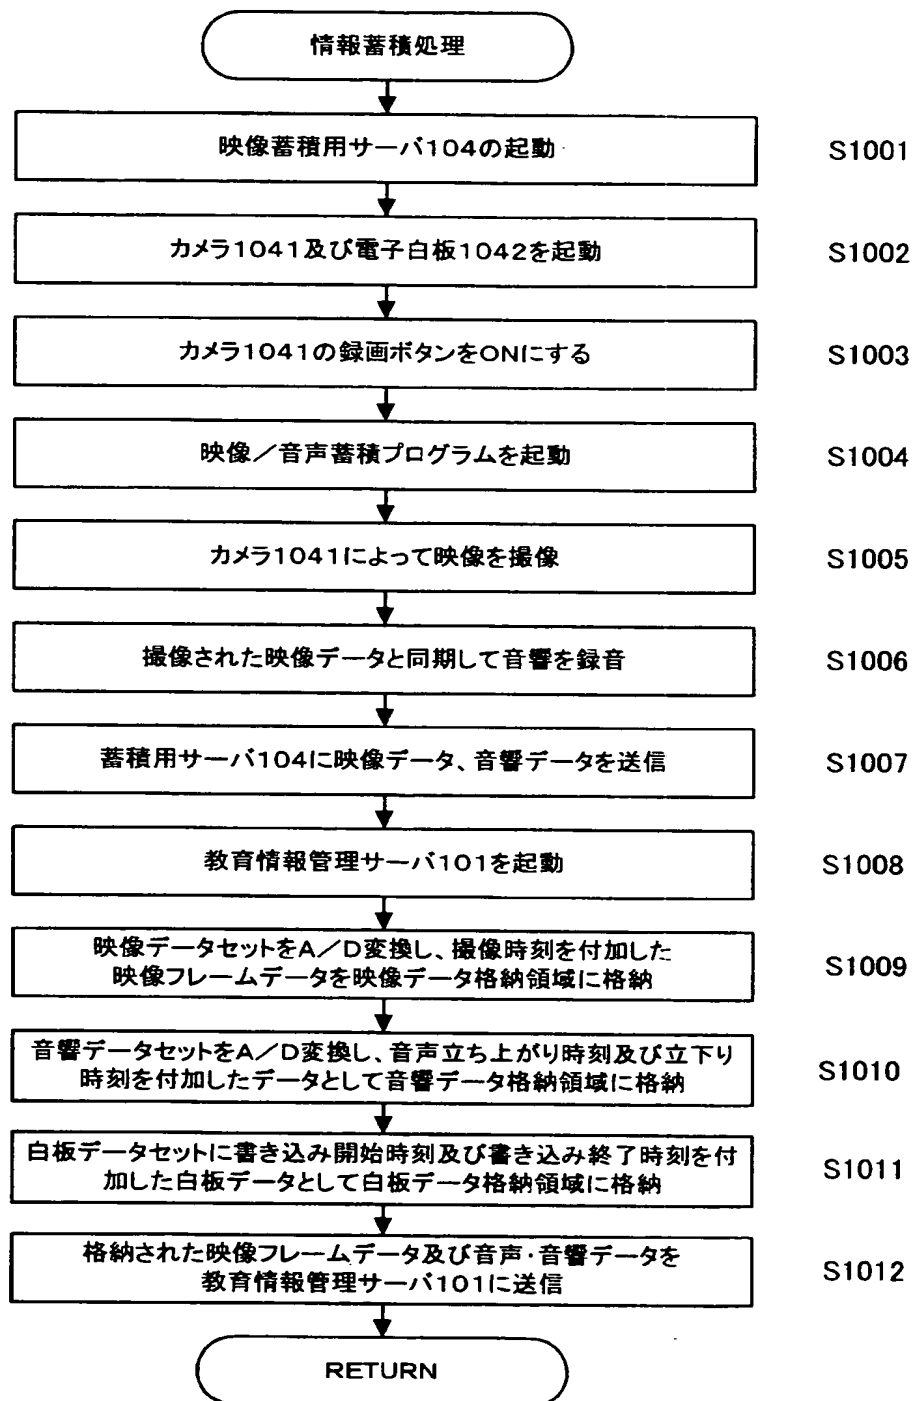 情報蓄積処理
映像蓄積用サーバ104の起動
S1001
カメラ1041及び電子白板1042を起動
S1002
カメラ1041の録画ボタンをONにする
S1003
映像／音声蓄積プログラムを起動
S1004
カメラ1041によって映像を撮像
S1005
撮像された映像データと同期して音響を録音
S1006
蓄積用サーバ104に映像データ、音響データを送信
S1007
教育情報管理サーバ101を起動
S1008
映像データセットをA／D変換し、撮像時刻を付加した
映像フレームデータを映像データ格納領域に格納
S1009
音響データセットをA／D変換し、音声立ち上がり時刻及び立下り
時刻を付加したデータとして音響データ格納領域に格納
S1010
白板データセットに書き込み開始時刻及び書き込み終了時刻を付
加した白板データとして白板データ格納領域に格納
S1011
格納された映像フレームデータ及び音声・音響データを
教育情報管理サーバ101に送信
S1012
RETURN